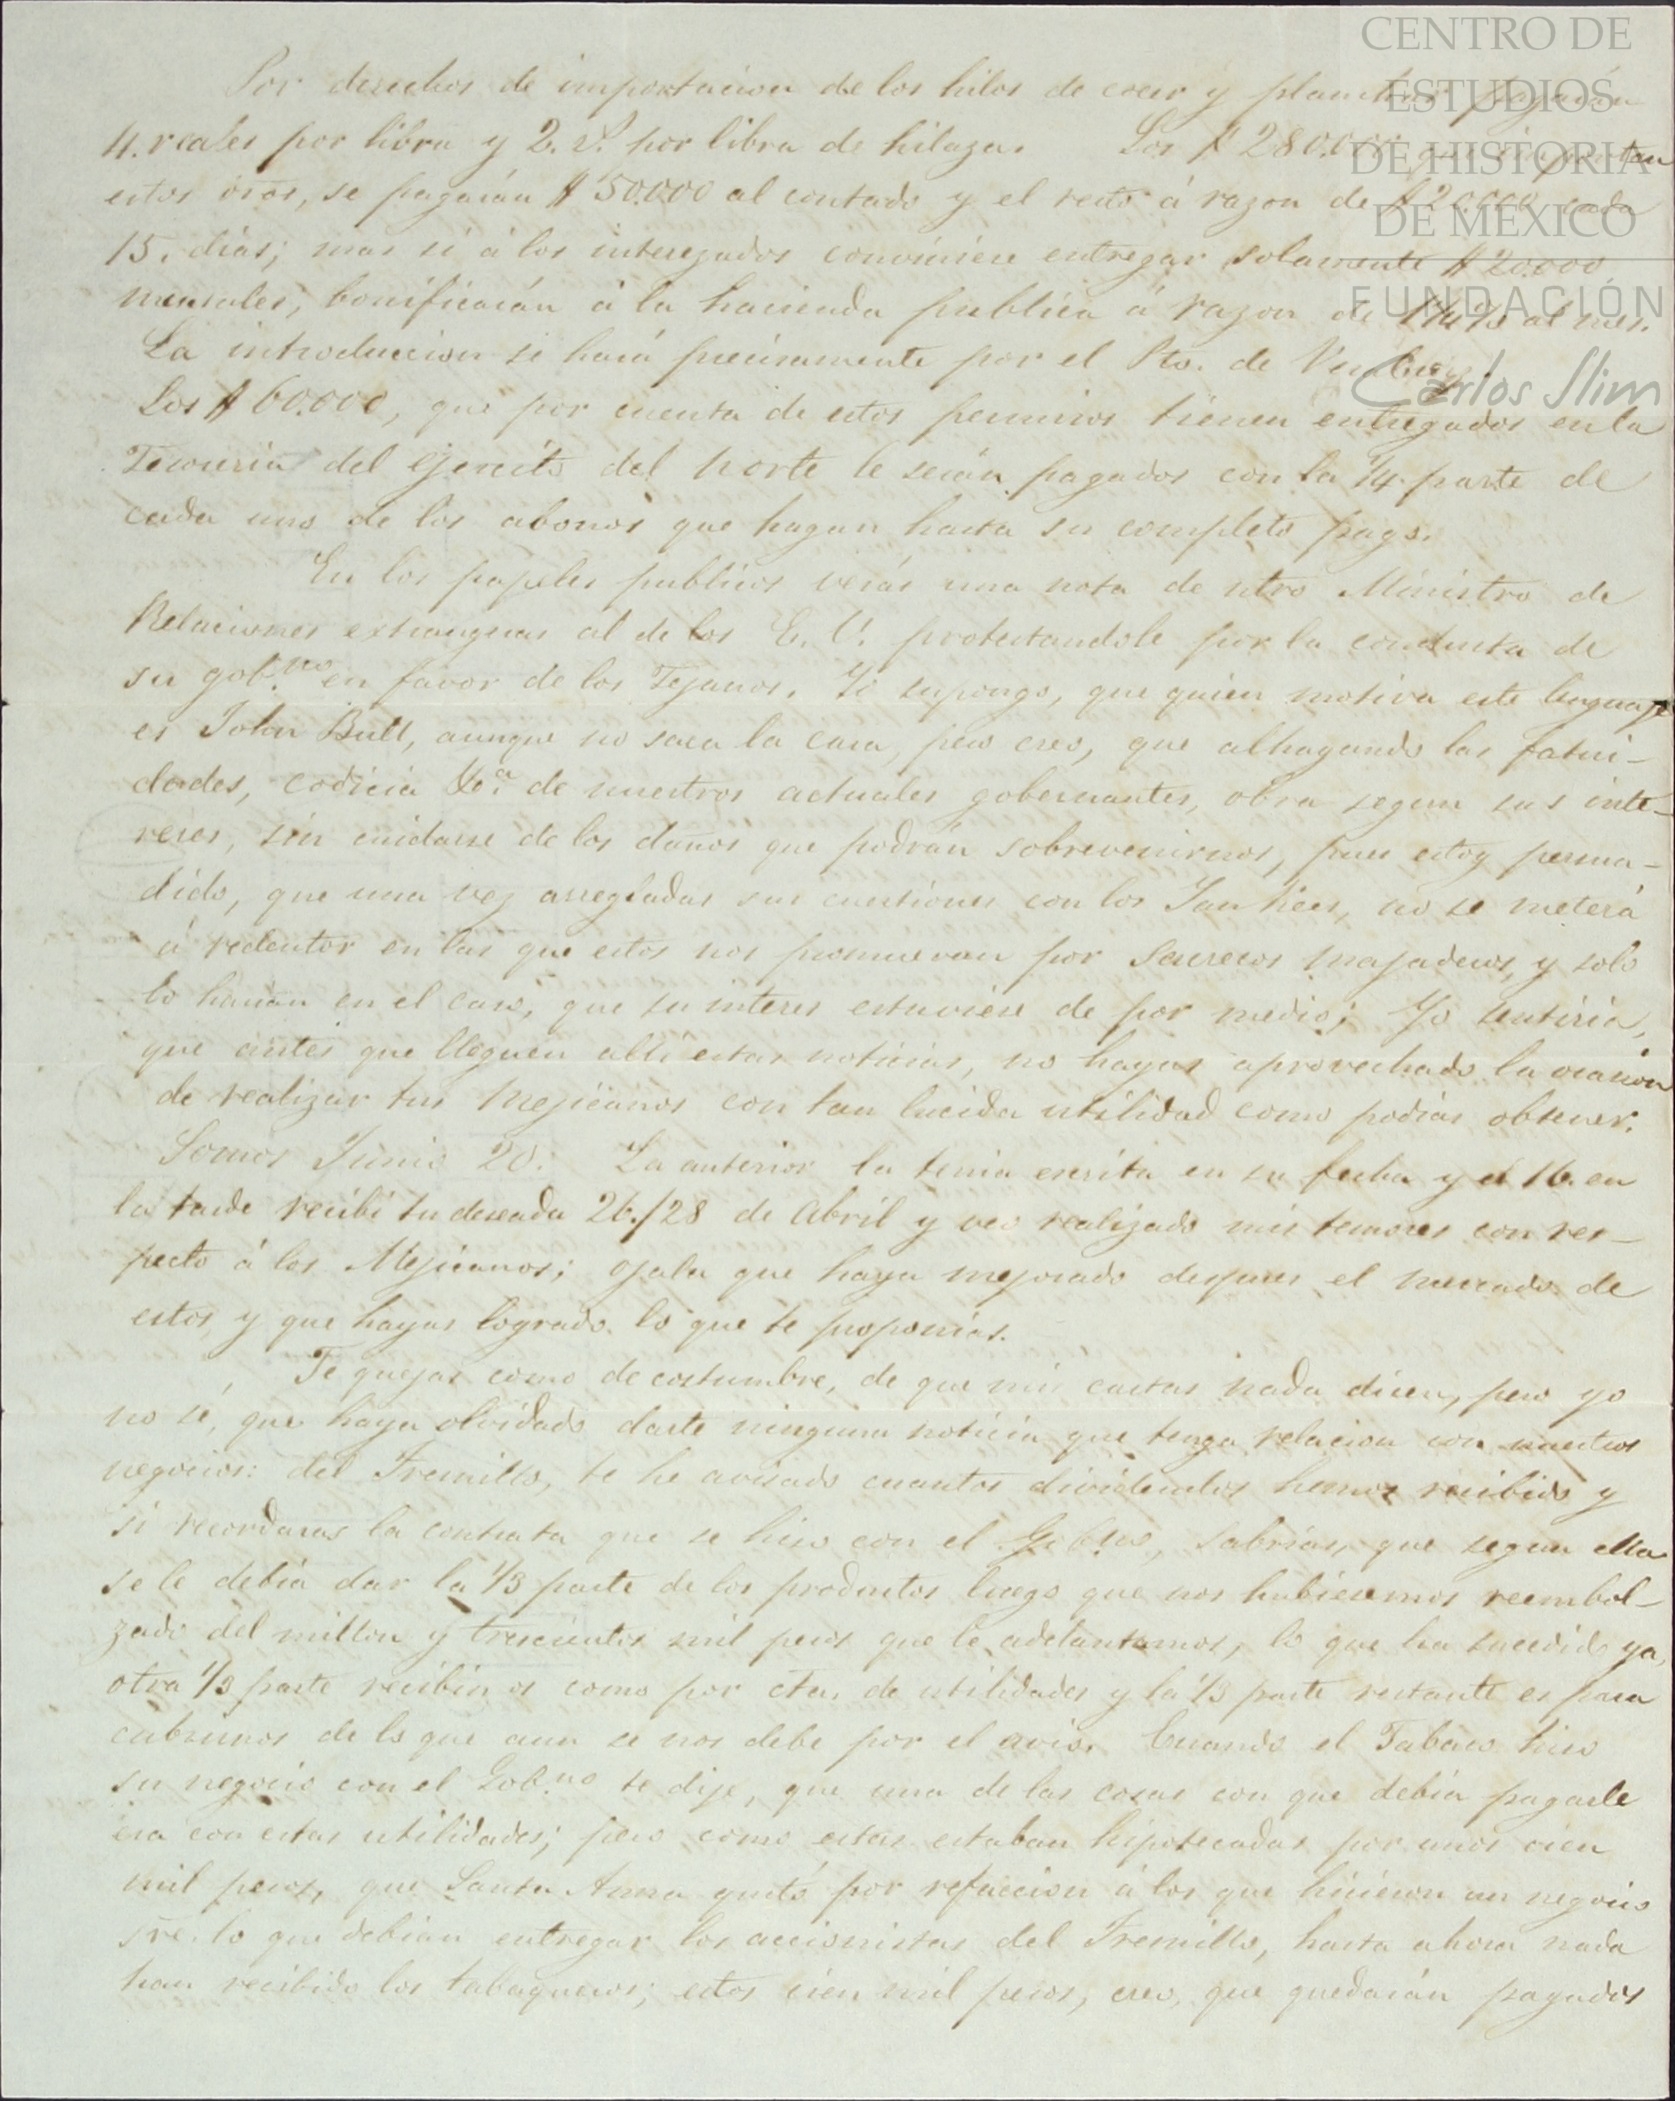 CENTRO DE
ESTUDIOS
DE HISTORIA
DE MEXICO
FUNDACIÓN
Carlos Slim
Por derechos de importacion de los hilos de coser y planchar pagarán
4. reales por libra y 2. r.s por libra de hilaza. Los $ 280.000 que importan
estos dros, se pagarán $ 50.000 al contado y el resto á razon de $ 20.000 cada
15. dias; mas si á los interezados conviniere entregar solamente $ 20.000
mensales, bonificarán á la hacienda publica á razon de 1¼ % al mes.
La introduccion se hará precisamente por el Pto. de
Los $ 60.000, que por cuenta de estos permisos tienen entregados en la
Tesoreria del Ejercito del norte le serán pagados con la ¼ parte de
cada uno de los abonos que hagan hasta su completo pago.
En los papeles publicos verás una nota de ntro Ministro de
Relaciones extrangeras al de los E. U. protestandole por la conducta de
su gob.no en favor de los Tejanos. Yo supongo, que quien motiva este lenguaje
es John Bull, aunque no saca la cara, pero creo, que alhagando las fatui-
dades, codicia &c.a de nuestros actuales gobernantes, obra segun sus inte-
reses, sin cuidarse de los daños que podrán sobrevenirnos, pues estoy persua-
dido, que una vez arregladas sus cuestiones con los Yankees, no se meterá
á redentor en las que estos nos promuevan por majaderos, y solo
lo harian en el caso, que su interes estuviese de por medio; Yo sentiria,
que antes que lleguen alli estas noticias, no hayas aprovechado la ocasion
de realizar tus Mejicanos con tan lucida utilidad como podias obtener.
Somos Junio 20. La anterior la tenia escrita en su fecha y el 16. en
la tarde recibi tu deseada 26./28 de Abril y veo realizado mis temores con res-
pecto á los Mejicanos; ojala que haya mejorado despues el mercado de
estos y que hayas logrado lo que te proponias.
Te quejas como de costumbre, de que mis cartas nada dicen, pero yo
no sé, que haya olvidado darte ninguna noticia que tenga relacion con nuestros
negocios: del Fresnillo, te he avisado cuantos dividendos hemos recibido y
si recordaras la contrata que se hiso con el Gobno, sabrias, que segun ella
se le debia dar la 1/3 parte de los productos luego que nos hubiesemos reembol-
zado del millon y trescientos mil pesos que le adelantamos, lo que ha sucedido ya,
otra 1/3 parte recibimos como por cta. de utilidades y la 1/3 parte restante es para
cubrirnos de lo que aun se nos debe por el avio. Cuando el Tabaco hiso
su negocio con el Gob.no te dije, que una de las cosas con que debia pagarle
era con estas utilidades; pero como estas estaban hipotecadas por unos cien
mil pesos, que Santa Anna quitó por refaccion á los que hicieron un negocio
sre. lo que debian entregar los accionistas del Fresnillo, hasta ahora nada
han recibido los tabaqueros; estos cien mil pesos, creo, que quedarán pagados